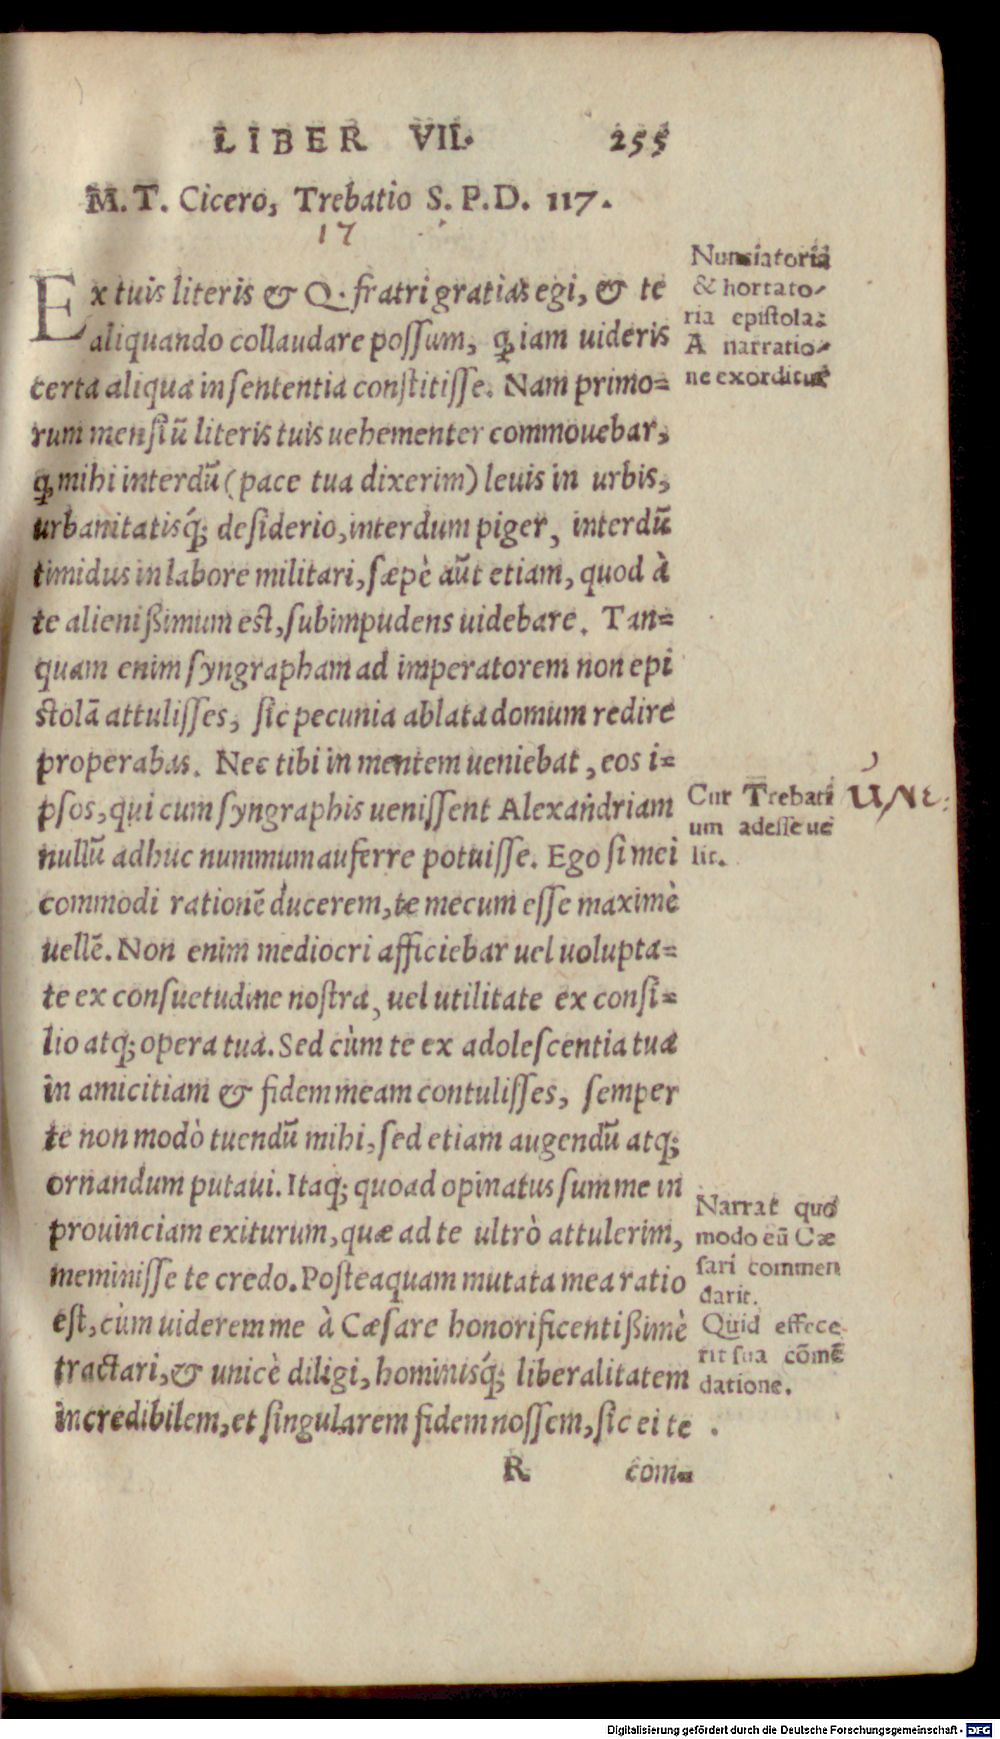 LIBER VII. 255
M. T. Cicero, Trebatio S. P. D. 117.
17
Ex tuis literis & Q. fratri gratias egi, & te
aliquando collaudare possum, ꝙ iam uideris
certa aliqua in sententia constitisse. Nam primo=
rum mensiū literis tuis uehementer commouebar,
ꝙ mihi interdū (pace tua dixerim) leuis in urbis,
urbanitatisq́; desiderio, interdum piger, interdū
timidus in labore militari, sæpè aūt etiam, quod à
te alienißimum est, subimpudens uidebare. Tan=
quam enim syngrapham ad imperatorem non epi
stolā attulisses, sic pecunia ablata domum redire
properabas. Nec tibi in mentem ueniebat, eos i=
psos, qui cum syngraphis uenissent Alexandriam
nullū adhuc nummum auferre potuisse. Ego si mei
commodi rationē ducerem, te mecum esse maximè
uellē. Non enim mediocri afficiebar uel uolupta=
te ex consuetudine nostra, uel utilitate ex consi=
lio atq; opera tua. Sed cùm te ex adolescentia tua
in amicitiam & fidem meam contulisses, semper
te non modò tuendū mihi, sed etiam augendū atq;
ornandum putaui. Itaq; quoad opinatus sum me in
prouinciam exiturum, quæ ad te ultrò attulerim,
meminisse te credo. Posteaquam mutata mea ratio
est, cùm uiderem me à Cæsare honorificentißimè
tractari, & unicè diligi, hominisq́; liberalitatem
incredibilem, et singularem fidem nossem, sic ei te
R com=
Nunciatoria
& hortato-
ria epistola:
A narratio-
ne exorditur
Cur Trebati
um adesse ue
lit.
Narrat quo
modo eū Cæ
sari commen
darit.
Quid effece
rit sua cōmē
datione.
Digitalisierung gefördert durch die Deutsche Forschungsgemeinschaft - DFG